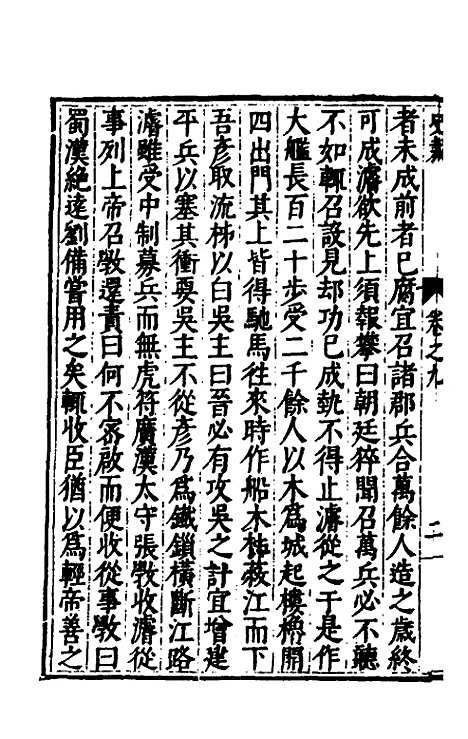 史纂 卷之九 二
者未成前者已腐宜召諸郡兵合萬餘人造之歲終
可成濬欲先上須報攀曰朝廷猝聞召萬兵必不聽
不如輒召設見却功已成執不得止濬從之于是作
大艦長百二十步受二千餘人以木為城起樓櫓開
四出門其上皆得馳馬往來時作船木柹蔽江而下
吾彥取流柹以白吳主曰晉必有攻吳之計宜增建
平兵以塞其衝要吳主不從彥乃爲鐵鎖橫斷江路
濬雖受中制募兵而無虎符廣漢太守張斆收濬從
事列上帝召斆還責曰何不密啟而便收從事斆曰
蜀漢絶遠劉備嘗用之矣輒收臣猶以爲輕帝善之